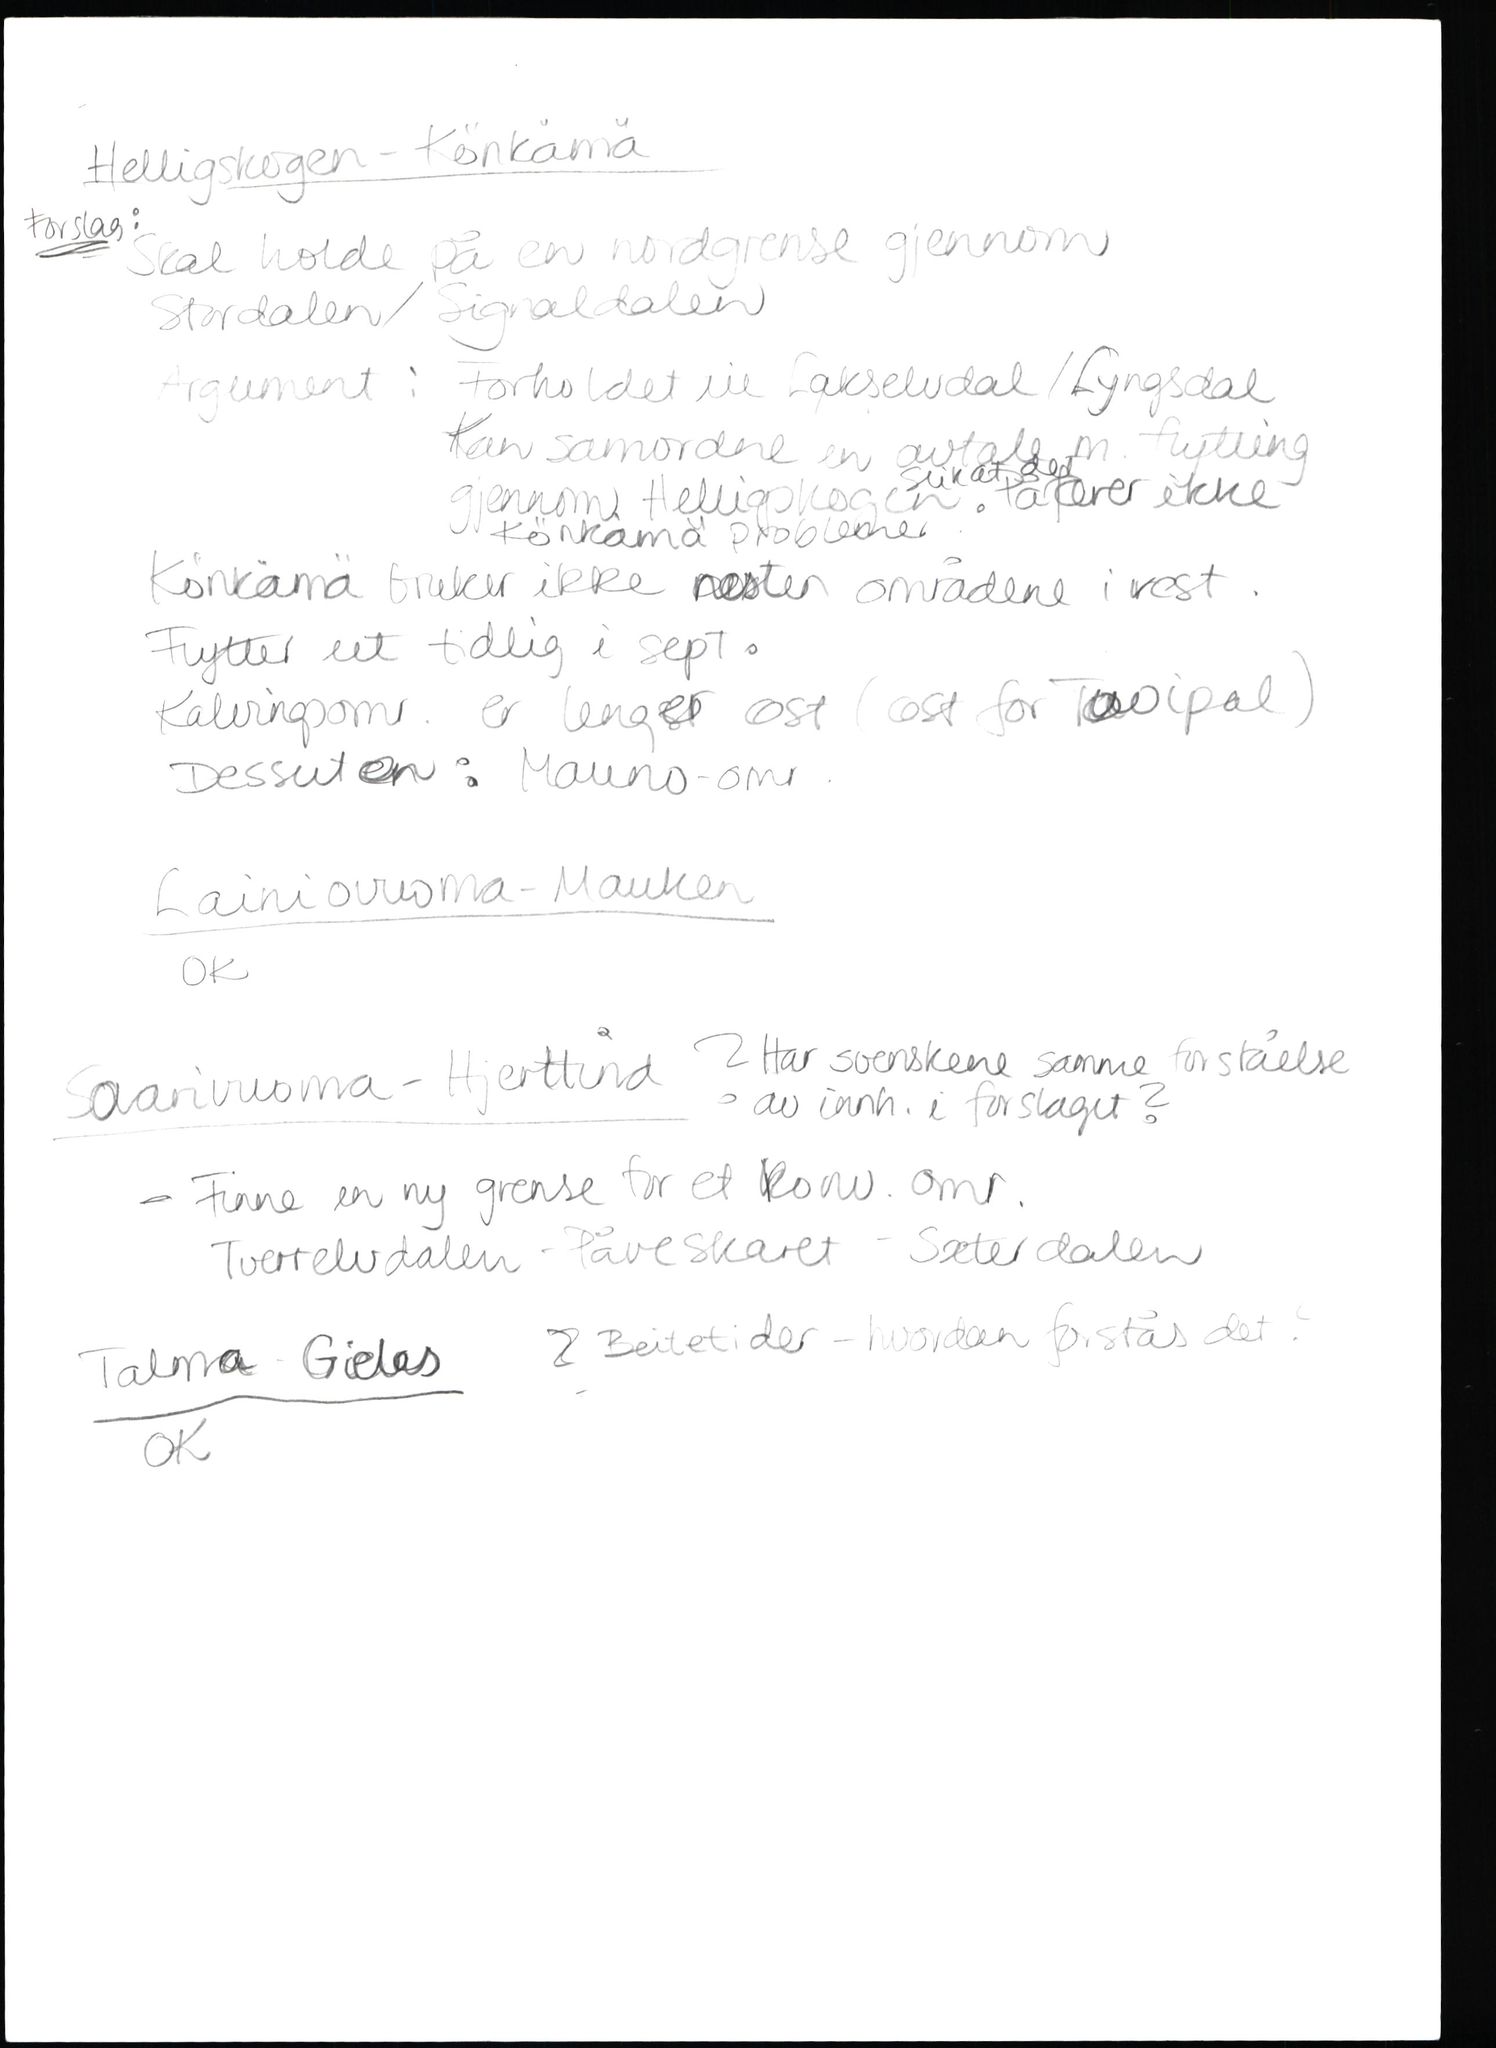 Helligskogen - Könkämä
Forslag:
Skal holde på en nordgrense gjennom
Stordalen/ Signaldalen
Argument: Forholdet til Lakselvdal/Lyngsdal
Kan samordne en avtale m. flytting
gjennom Helligskogen. slik at det påfører ikke
Könkämä problemer.
Könkämä bruker ikke nesten områdene i vest.
Flytter ut tidlig i sept.
Kalvingsomr. er lengst øst (øst for
Dessuten: Mauno-omr.
Lainiovuoma - Mauken
OK
Saarivuoma - Hjerttind ? Har svenskene samme forståelse
av innh. i forslaget?
- Finne en ny grense for et konv. omr.
Tverrelvdalen - Påveskaret - Sæterdalen
Talma - Gielas ? Beitetider - hvordan forstås det?
OK